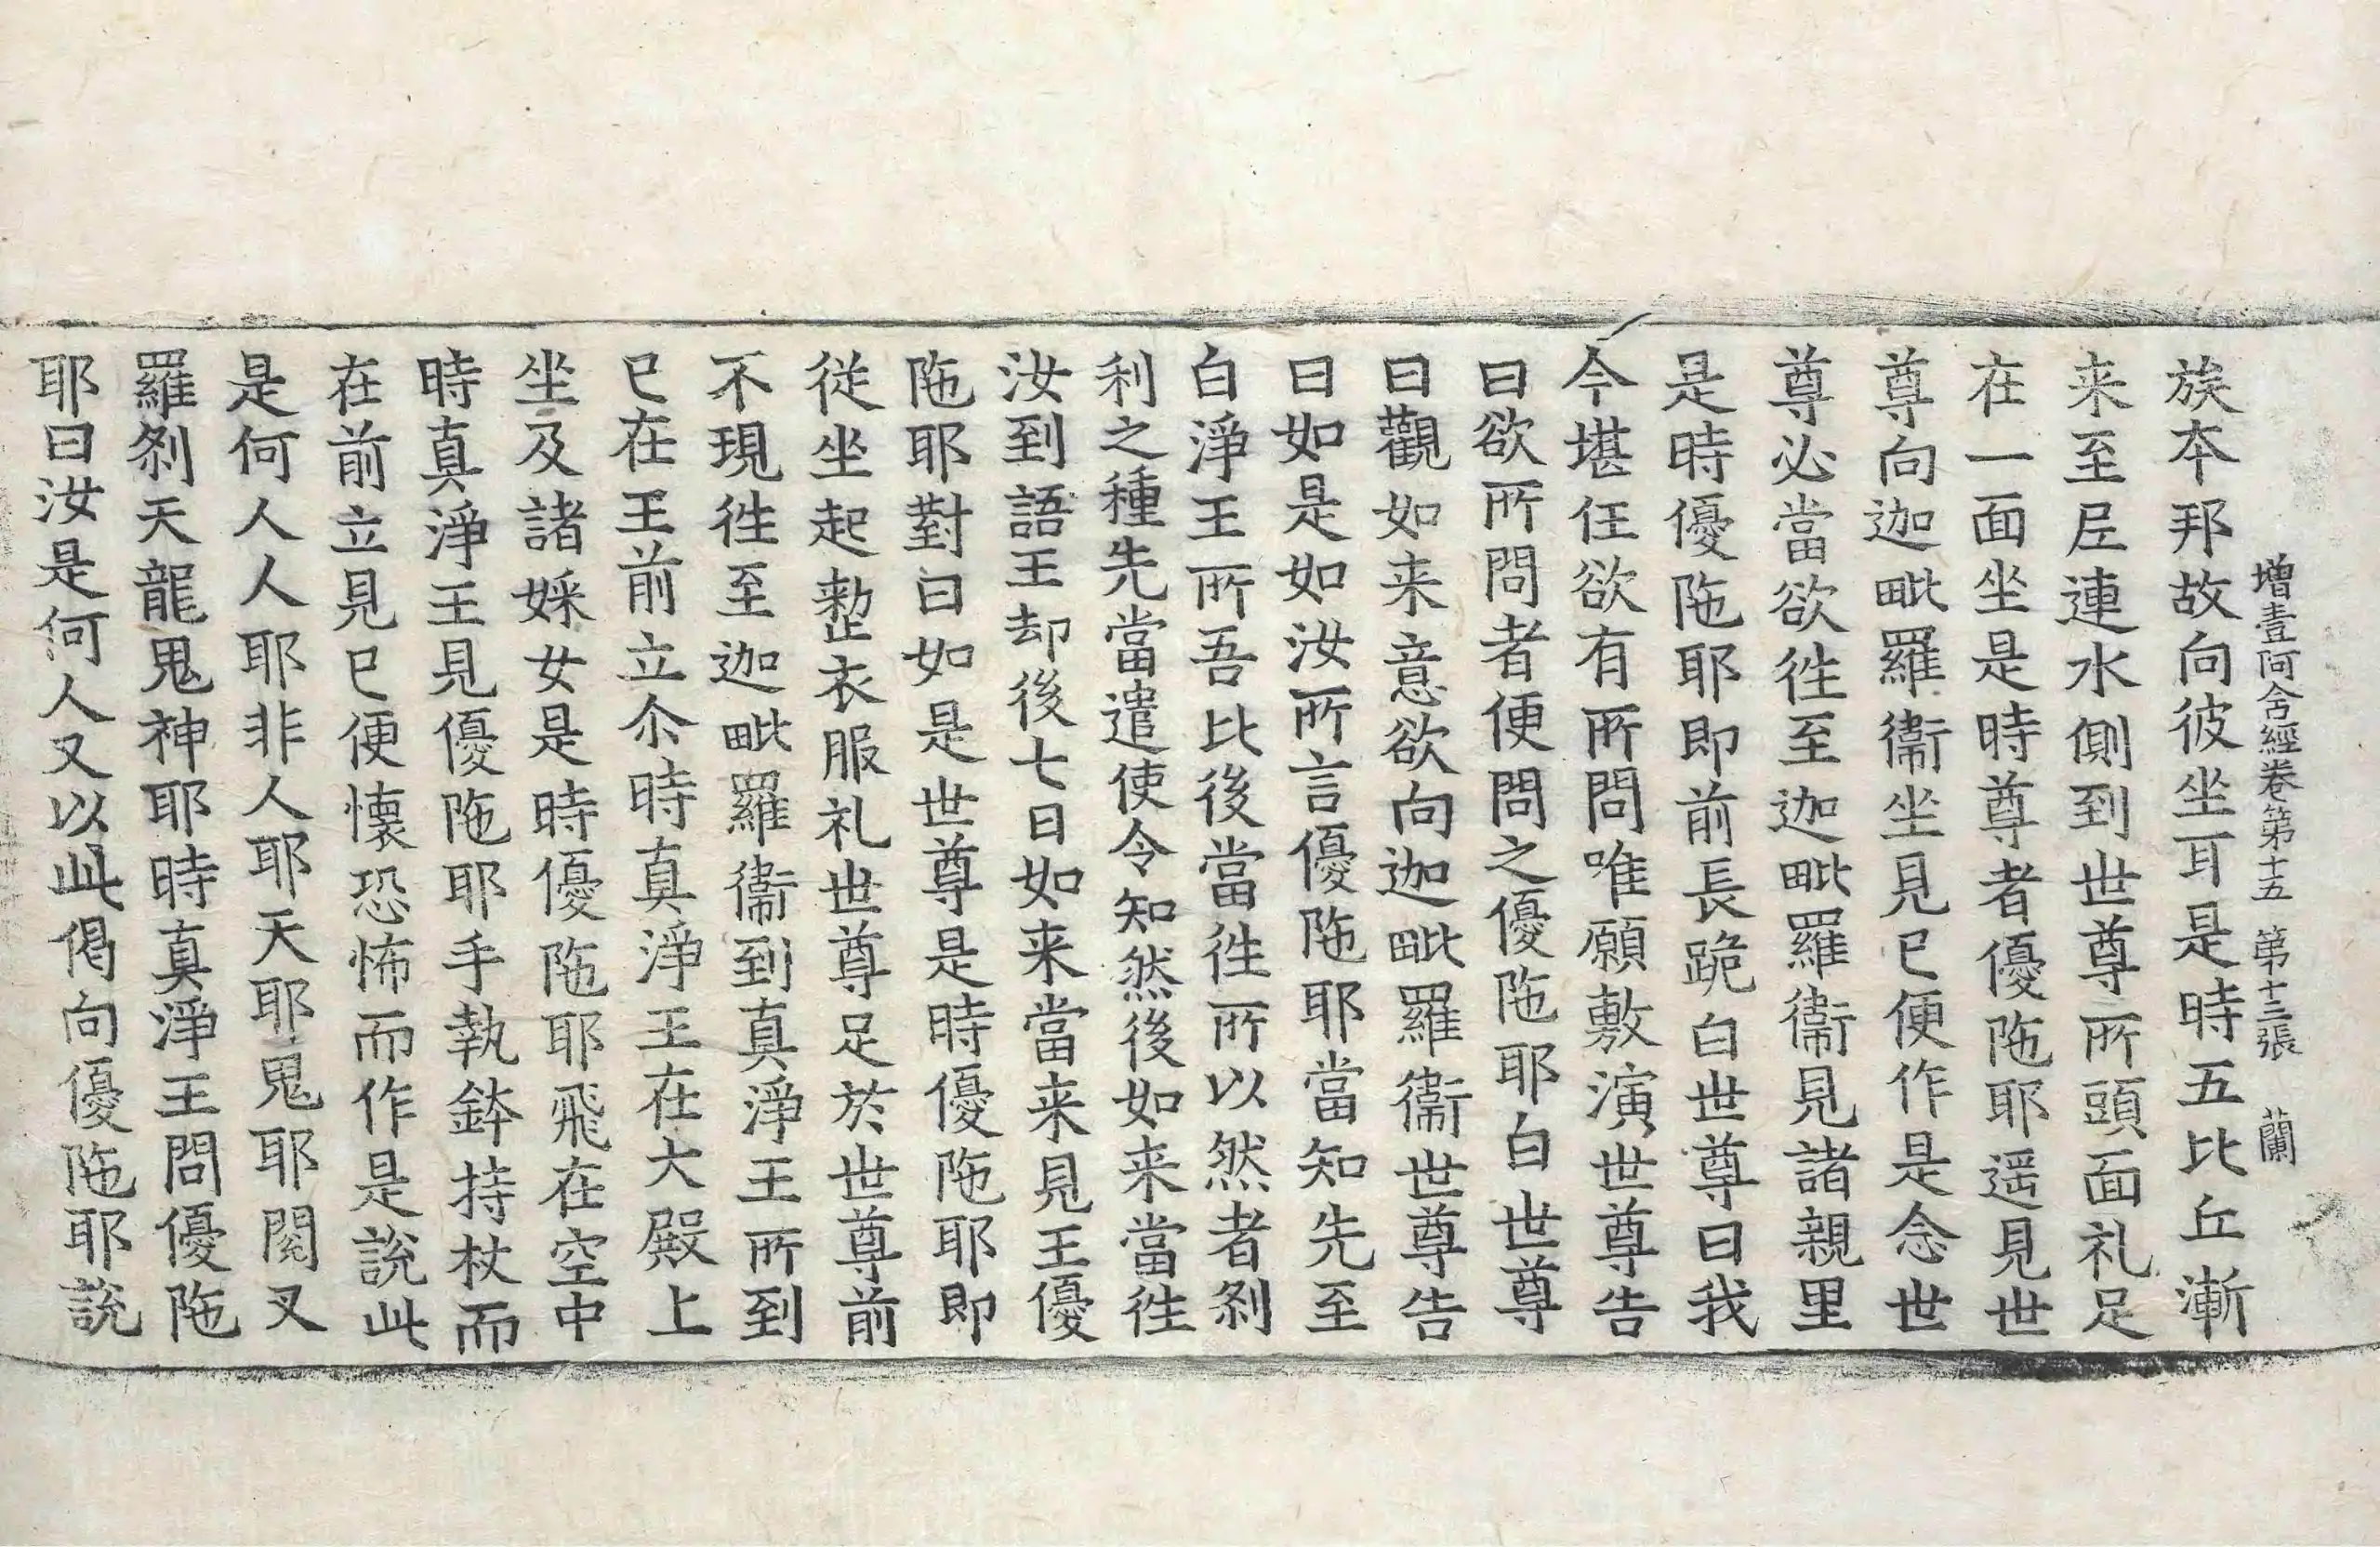 增壹阿含經卷第十五 第十三張 蘭
族本邦故向彼坐耳是時五比丘漸
来至尼連水側到世尊所頭面礼足
在一面坐是時尊者優陁耶遥見世
尊向迦毗羅衞坐見已便作是念世
尊必當欲徃至迦毗羅衞見諸親里
是時優陁耶即前長跪白世尊曰我
今堪任欲有所問唯願敷演世尊告
曰欲所問者便問之優陁耶白世尊
曰觀如来意欲向迦毗羅衞世尊告
曰如是如汝所言優陁耶當知先至
白淨王所吾比後當徃所以然者刹
利之種先當遣使令知然後如来當徃
汝到語王却後七日如来當来見王優
陁耶對曰如是世尊是時優陁耶即
從坐起整衣服礼世尊足於世尊前
不現徃至迦毗羅衞到真淨王所到
已在王前立尒時真淨王在大殿上
坐及諸婇女是時優陁耶飛在空中
時真淨王見優陁耶手執鉢持杖而
在前立見已便懷恐怖而作是說此
是何人人耶非人耶天耶鬼耶閱叉
羅刹天龍鬼神耶時真淨王問優陁
耶曰汝是何人又以此偈向優陁耶說